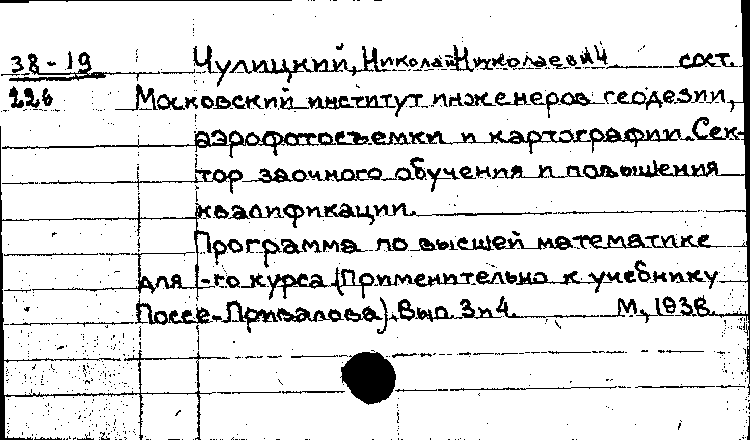 38-19 Чулицкий, Николай Николаевич сост.
226 Московский институт инженеров геодезии,
аэрофотосъемки и картографии. Сек-
тор заочного обучения и повышения
квалификации.
Программа по высшей математике
для I-го курса (Применительно к учебнику
Поссе-Привалова). Вып. 3 и 4. М., 1938.